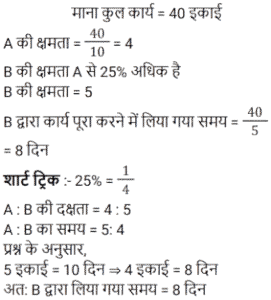 माना कुल कार्य = 40 इकाई
A की क्षमता = 40/10 = 4
B की क्षमता A से 25% अधिक है
B की क्षमता = 5
B द्वारा कार्य पूरा करने में लिया गया समय = 40/5
= 8 दिन
शार्ट ट्रिक :- 25% = 1/4
A : B की दक्षता = 4 : 5
A : B का समय = 5: 4
प्रश्न के अनुसार,
5 इकाई = 10 दिन ⇒ 4 इकाई = 8 दिन
अत: B द्वारा लिया गया समय = 8 दिन